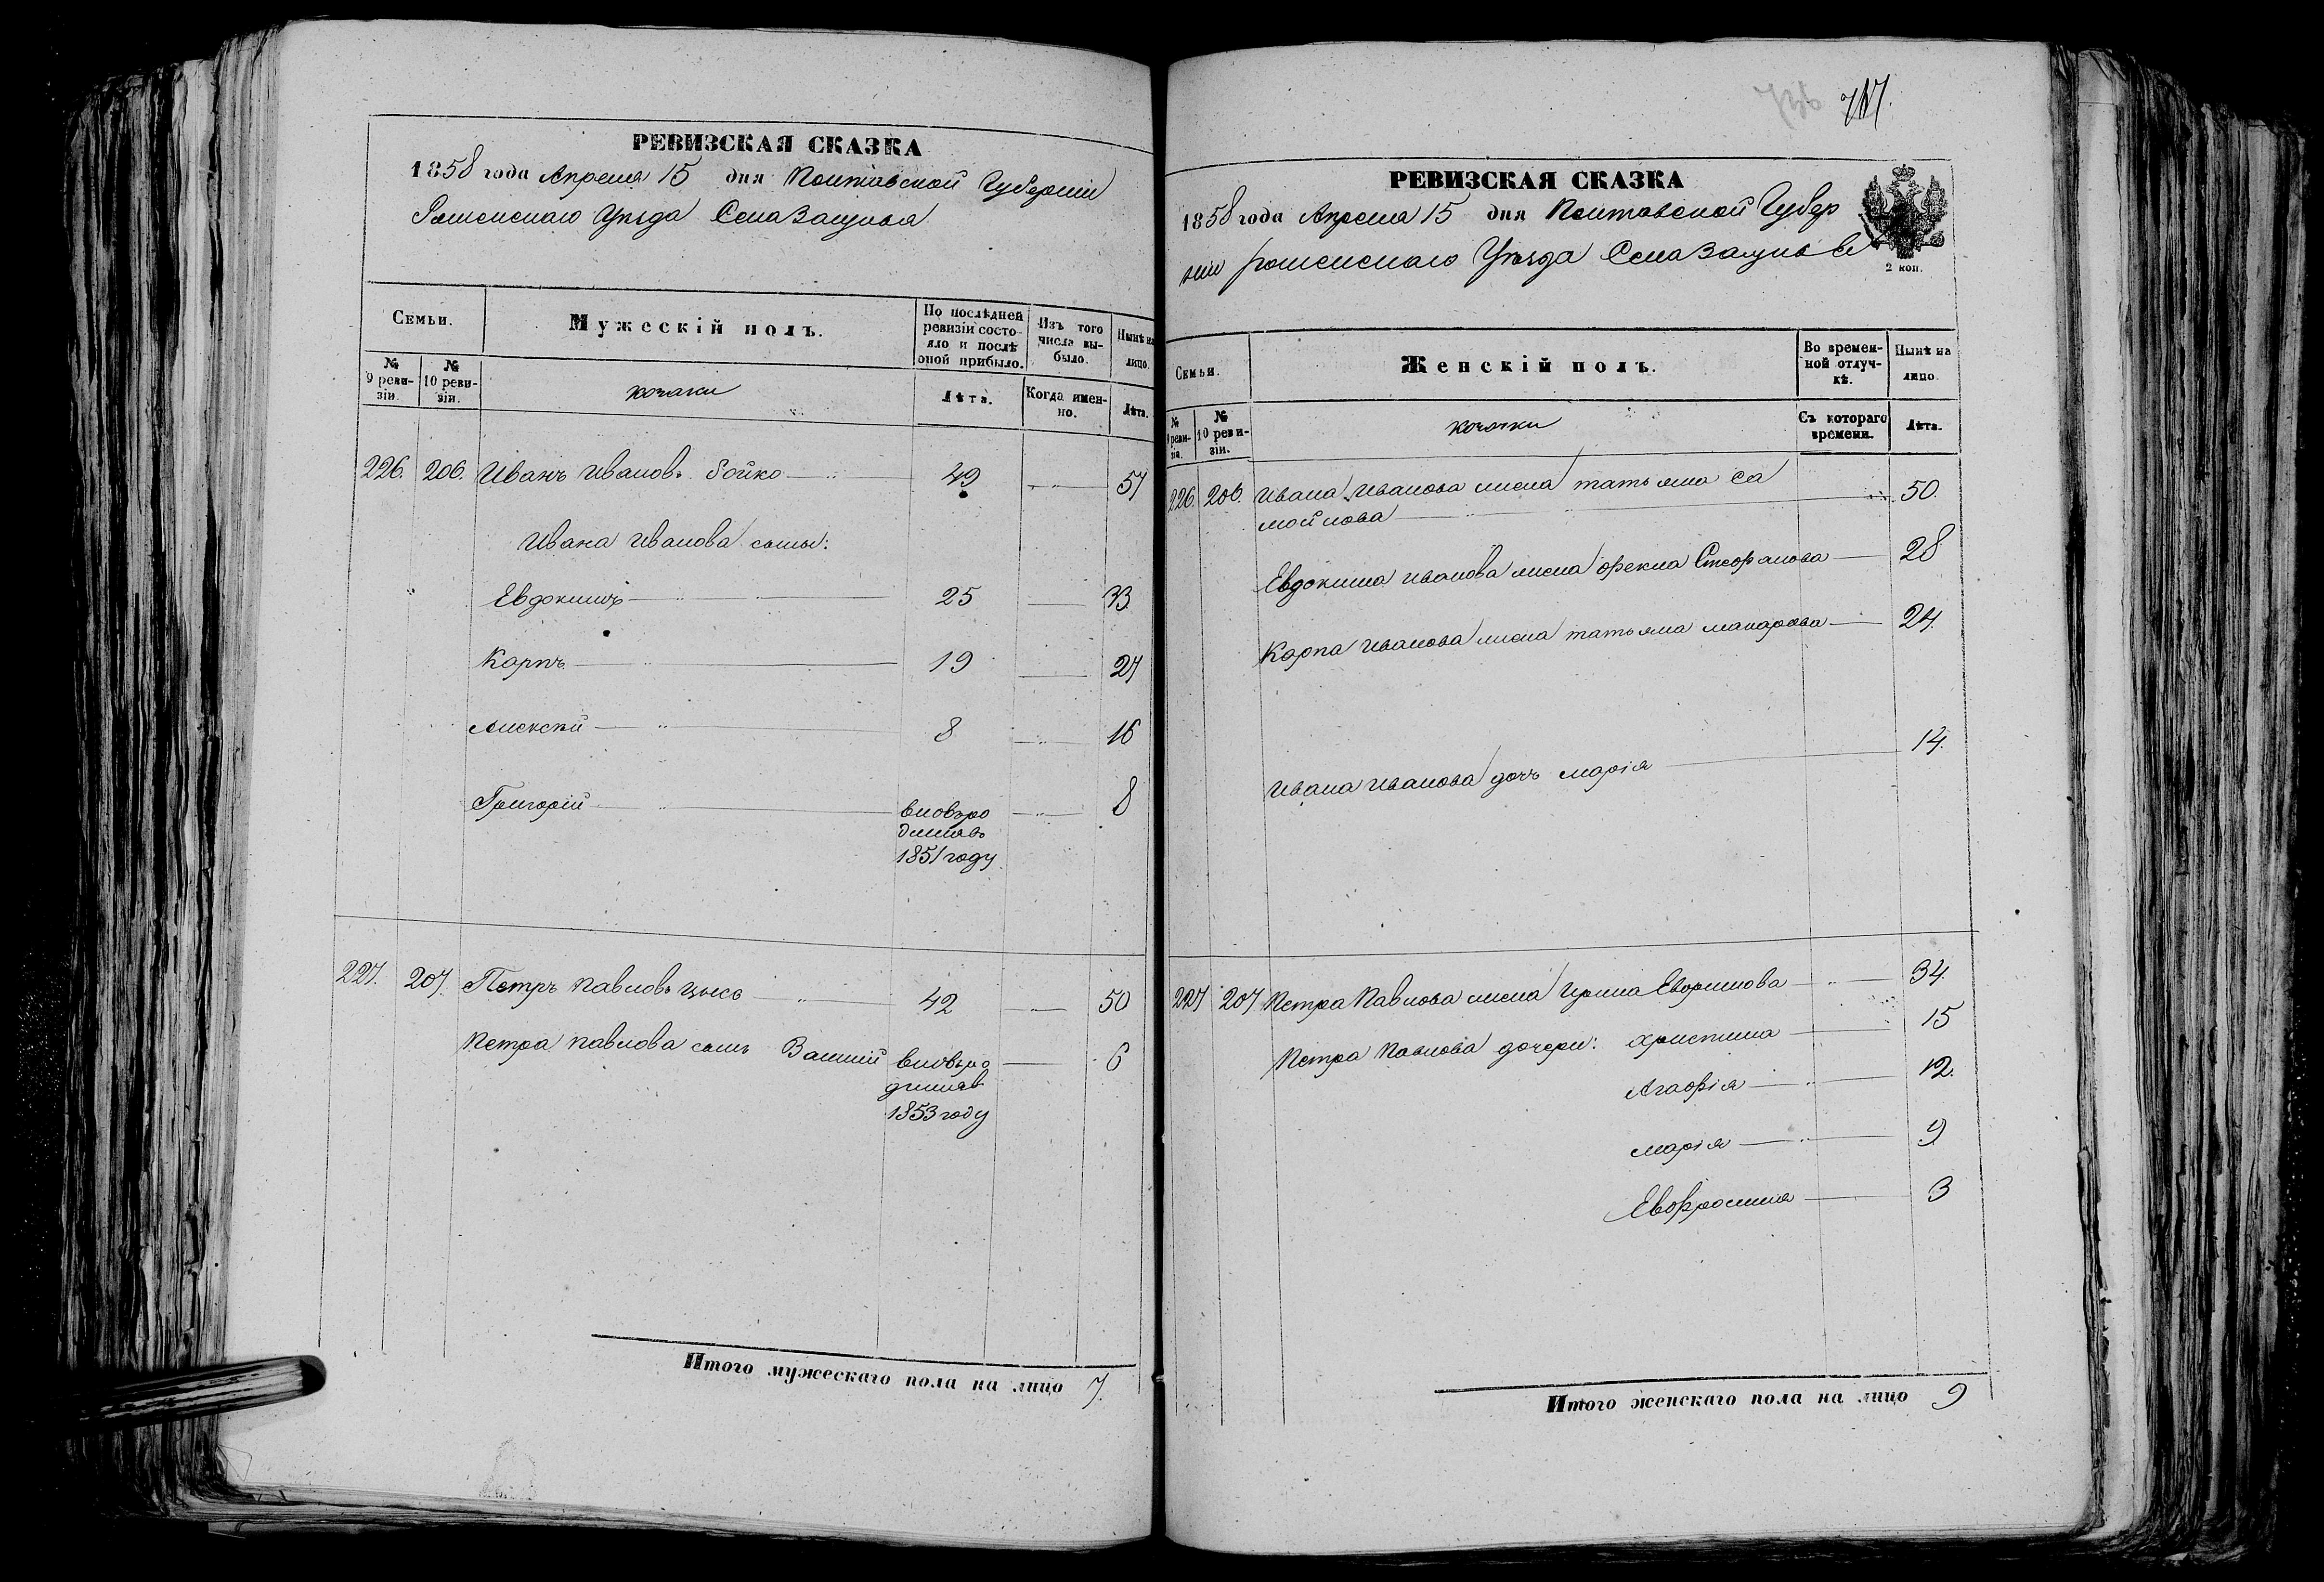 РЕВИЗСКАЯ СКАЗКА
1858 года Апреля 15 дня Полтавской Губерніи
Роменскаго Уѣзда Села
Семьи. Мужескій полъ. По послѣдней ревизіи состояло и послѣ оной прибыло. Изъ того числа выбыло. Нынѣ на лицо.
№ 9 ревизіи. № 10 ревизіи. козаки Лѣта. Когда именно. Лѣта.
226. 206. Иванъ Ивановъ Бойко 49 57
Ивана Иванова сыны:
Евдокимъ 25 33
Карпъ 19 27
Алексѣй 8 16
Григорій вновьро 8
дился въ
1851 году
227. 207. Петръ Павловъ 42 50
Петра Павлова сынъ вновьро 6
дился в
1853 году
Итого мужескаго пола на лицо 7.
736 717.
РЕВИЗСКАЯ СКАЗКА
1858 года Апреля 15 дня Полтавской Губер
ніи роменскаго Уѣзда Села
2 коп.
Семьи. Женскій полъ. Во временной отлучкѣ. Нынѣ на лицо.
№ 9 ревизіи. № 10 ревизіи. козачки Съ котораго времени. Лѣта.
226. 206. Ивана Иванова жена татьяна Са 50.
мойлова
Евдокима иванова жена фекла Стефанова 28
Карпа Иванова жена татьяна макарова 24.
Ивана Иванова дочь марія 14.
227 207 Петра Павлова жена Ирина 34.
Петра Павлова дочери: христина 15
Агафія 12.
марія 9
Евфросинія 3
Итого женскаго пола на лицо 9